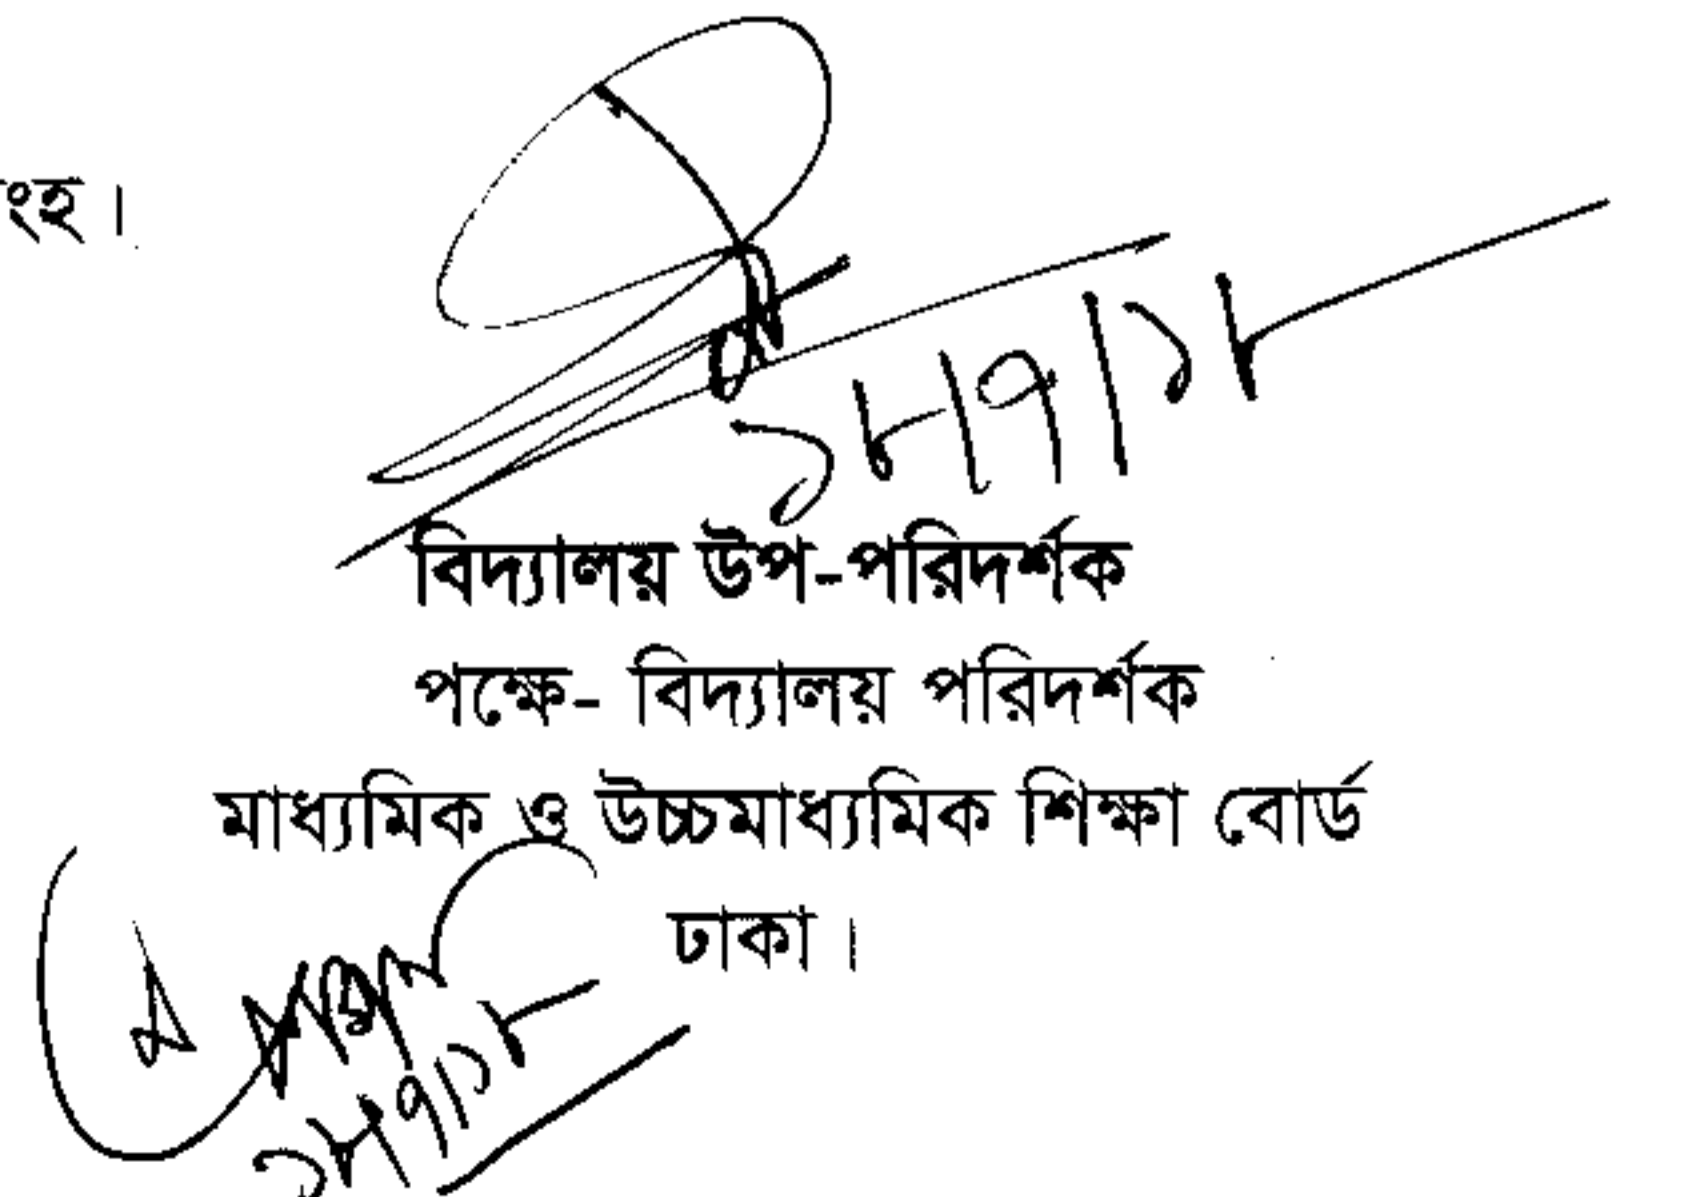 ংহ।
১৮/৭/১৮
বিদ্যালয় উপ-পরিদর্শক
পক্ষে- বিদ্যালয় পরিদর্শক
মাধ্যমিক ও উচ্চমাধ্যমিক শিক্ষা বোর্ড
ঢাকা।
১৮/৭/১৮